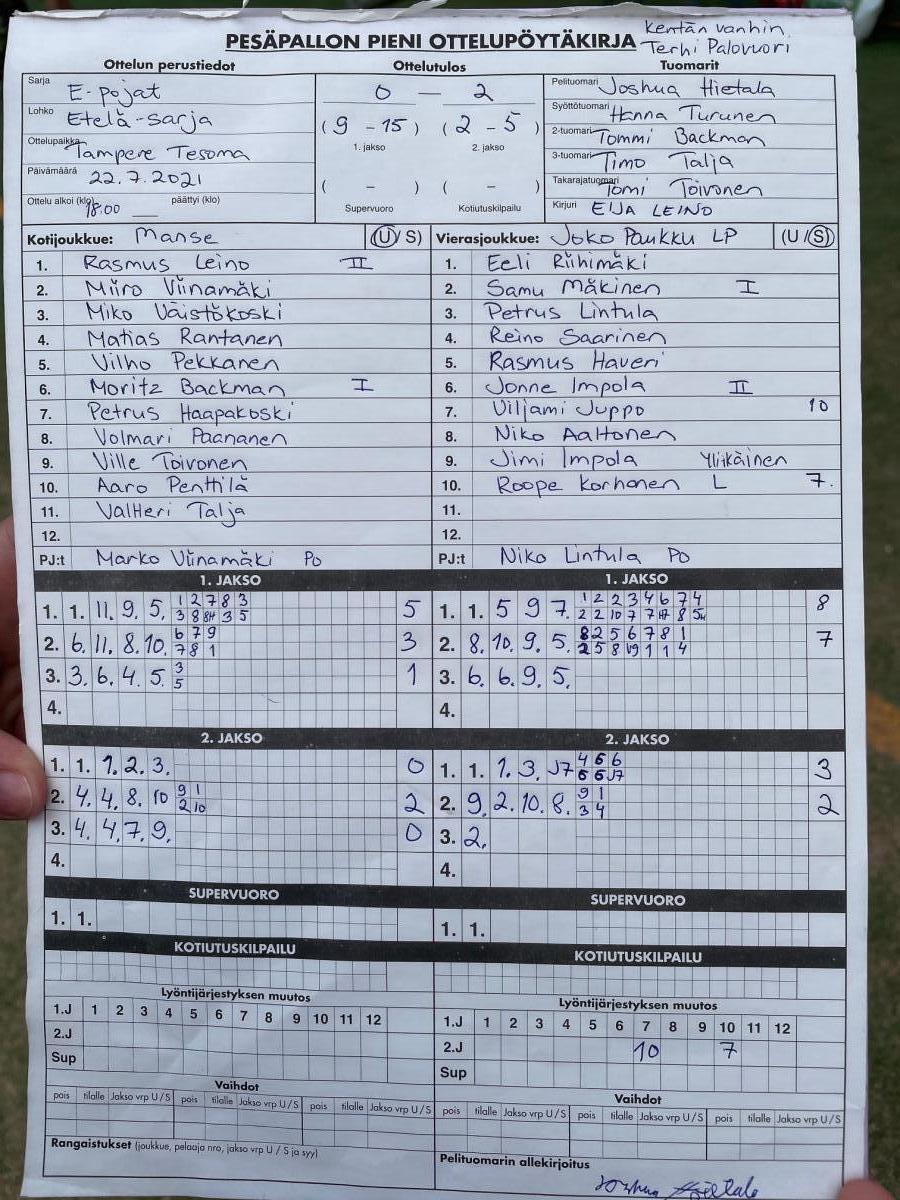 Kentän vanhin
PESÄPALLON PIENI OTTELUPÖYTÄKIRJA Terhi Palovuori
Ottelun perustiedot Ottelutulos Tuomarit
Sarja E-pojat 0 — 2 Pelituomari Joshua Hietala
Lohko Etelä-sarja (9 - 15) (2 - 5) Syöttötuomari Hanna Turunen
1. jakso 2. jakso 2-tuomari Tommi Backman
Ottelupaikka Tampere Tesoma 3-tuomari Timo Talja
Päivämäärä 22.7.2021 ( - ) ( - ) Takarajatuomari Tomi Toivonen
Ottelu alkoi (klo) 18:00 päättyi (klo) Supervuoro Kotiutuskilpailu Kirjuri EIJA LEINO
Kotijoukkue: Manse (U/S) Vierasjoukkue: JoKo Paukku LP (U/S)
1. Rasmus Leino II 1. Eeli Riihimäki
2. Miiro Viinamäki 2. Samu Mäkinen I
3. Miko Väistökoski 3. Petrus Lintula
4. Matias Rantanen 4. Reino Saarinen
5. Vilho Pekkanen 5. Rasmus Haveri
6. Moritz Backman I 6. Jonne Impola II
7. Petrus Haapakoski 7. Viljami Juppo 10
8. Volmari Paananen 8. Niko Aaltonen
9. Ville Toivonen 9. Jimi Impola Yliikäinen
10. Aaro Penttilä 10. Roope Korhonen L 7.
11. Valtteri Talja 11.
12. 12.
PJ:t Marko Viinamäki PO PJ:t Niko Lintula PO
1. JAKSO 1. JAKSO
1 2 7 8 3 1 2 2 3 4 6 7 4
1. 1. 11. 9. 5. 3 8 8H 3 5 5 1. 1. 5 9 7. 2 2 10 7 7 H7 8 5H 8
6 7 9 8 2 5 6 7 8 1
2. 6. 11. 8. 10. 7 8 1 3 2. 8. 10. 9. 5. 2 5 8 1 1 4 7
3
3. 3. 6. 4. 5. 5 1 3. 6. 6. 9. 5.
4. 4.
2. JAKSO 2. JAKSO
4 5 6
1. 1. 1. 2. 3. 0 1. 1. 1. 3. J7 6 6 J7 3
9 1 9 1
2. 4. 4. 8. 10 2 10 2 2. 9. 2. 10. 8. 3 4 2
3. 4. 4. 7. 9. 0 3. 2.
4. 4.
SUPERVUORO SUPERVUORO
1. 1. 1. 1.
KOTIUTUSKILPAILU KOTIUTUSKILPAILU
Lyöntijärjestyksen muutos Lyöntijärjestyksen muutos
1.J 1 2 3 4 5 6 7 8 9 10 11 12 1.J 1 2 3 4 5 6 7 8 9 10 11 12
2.J 2.J 10 7
Sup Sup
Vaihdot Vaihdot
pois tilalle Jakso vrp U/S pois tilalle Jakso vrp U/S pois tilalle Jakso vrp U/S pois tilalle Jakso vrp U/S pois tilalle Jakso vrp U/S pois tilalle Jakso vrp U/S
Rangaistukset (joukkue, pelaaja nro, jakso vrp U / S ja syy) Pelituomarin allekirjoitus
Joshua Hietala